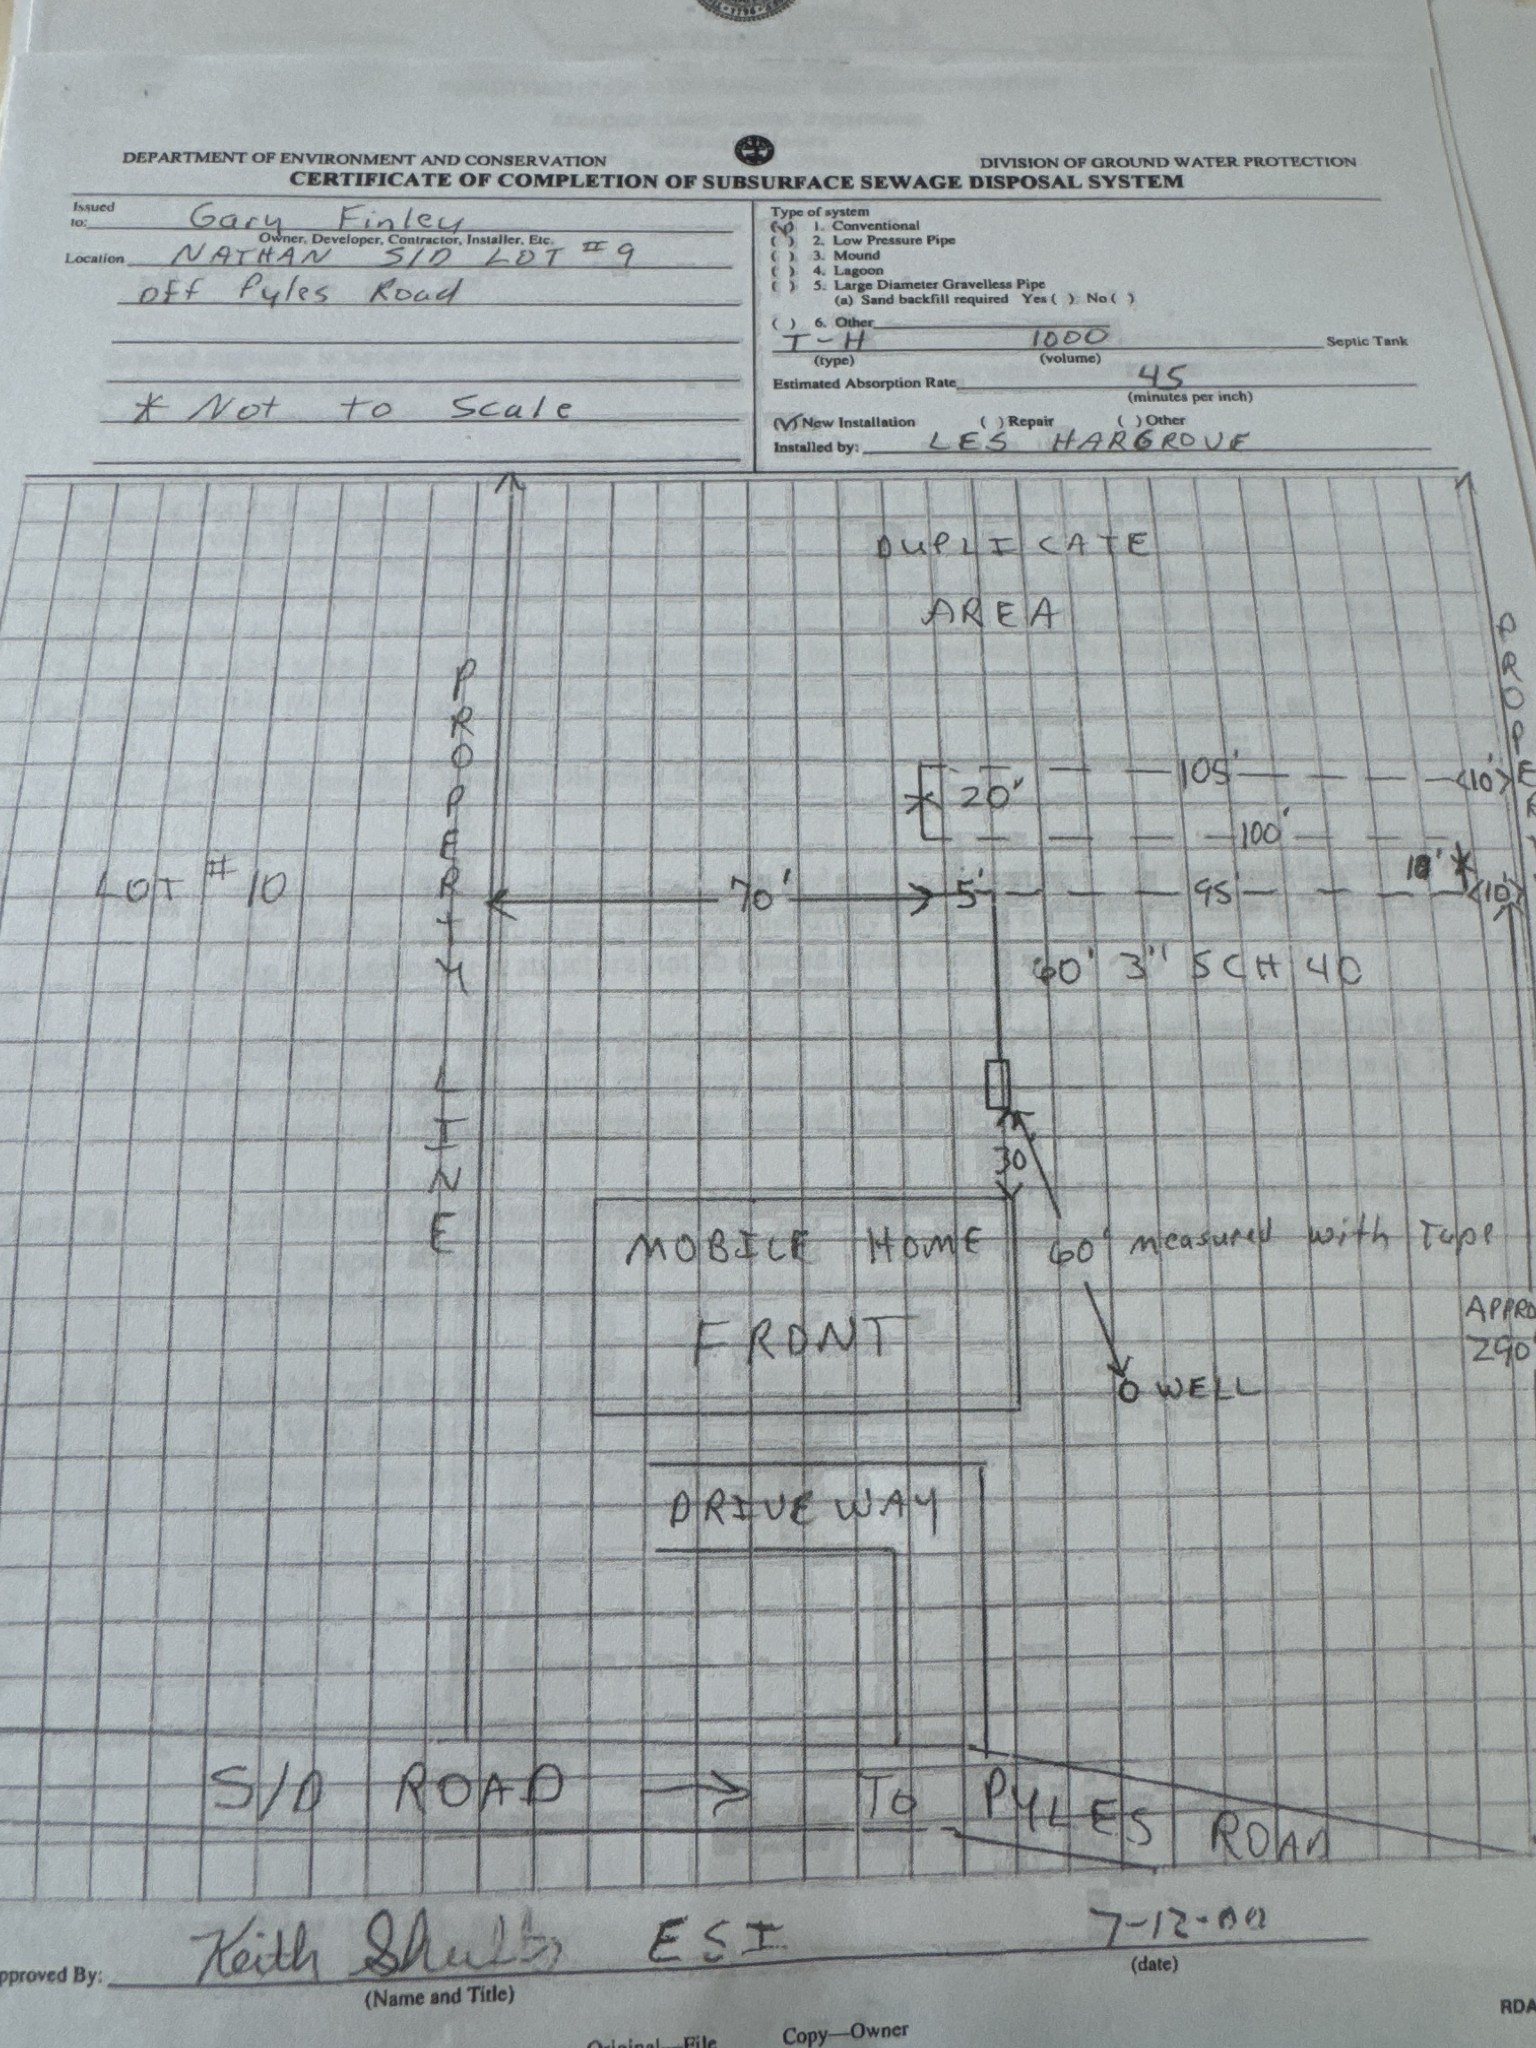 1796
DEPARTMENT OF ENVIRONMENT AND CONSERVATION
DIVISION OF GROUND WATER PROTECTION
CERTIFICATE OF COMPLETION OF SUBSURFACE SEWAGE DISPOSAL SYSTEM
Issued to: Gary Finley
Owner, Developer, Contractor, Installer, Etc.
Location NATHAN S/D LOT # 9
off Pyles Road
* Not to Scale
Type of system
(✓) 1. Conventional
( ) 2. Low Pressure Pipe
( ) 3. Mound
( ) 4. Lagoon
( ) 5. Large Diameter Gravelless Pipe
(a) Sand backfill required Yes ( ) No ( )
( ) 6. Other
I-H 1000 Septic Tank
(type) (volume)
Estimated Absorption Rate 45
(minutes per inch)
(✓) New Installation ( ) Repair ( ) Other
Installed by: LES HARGROVE
DUPLICATE
AREA
PROPERTY LINE
PROPER
105' <10'>
* 20'
100'
10' *
LOT # 10
70' 5' 95' <10'>
60' 3" SCH 40
30'
MOBILE HOME
60' measured with Tape
FRONT
APPRO
290'
O WELL
DRIVEWAY
S/D ROAD → TO PYLES ROAD
pproved By: Keith ESI 7-12-00
(Name and Title) (date)
RDA
Original—File Copy—Owner